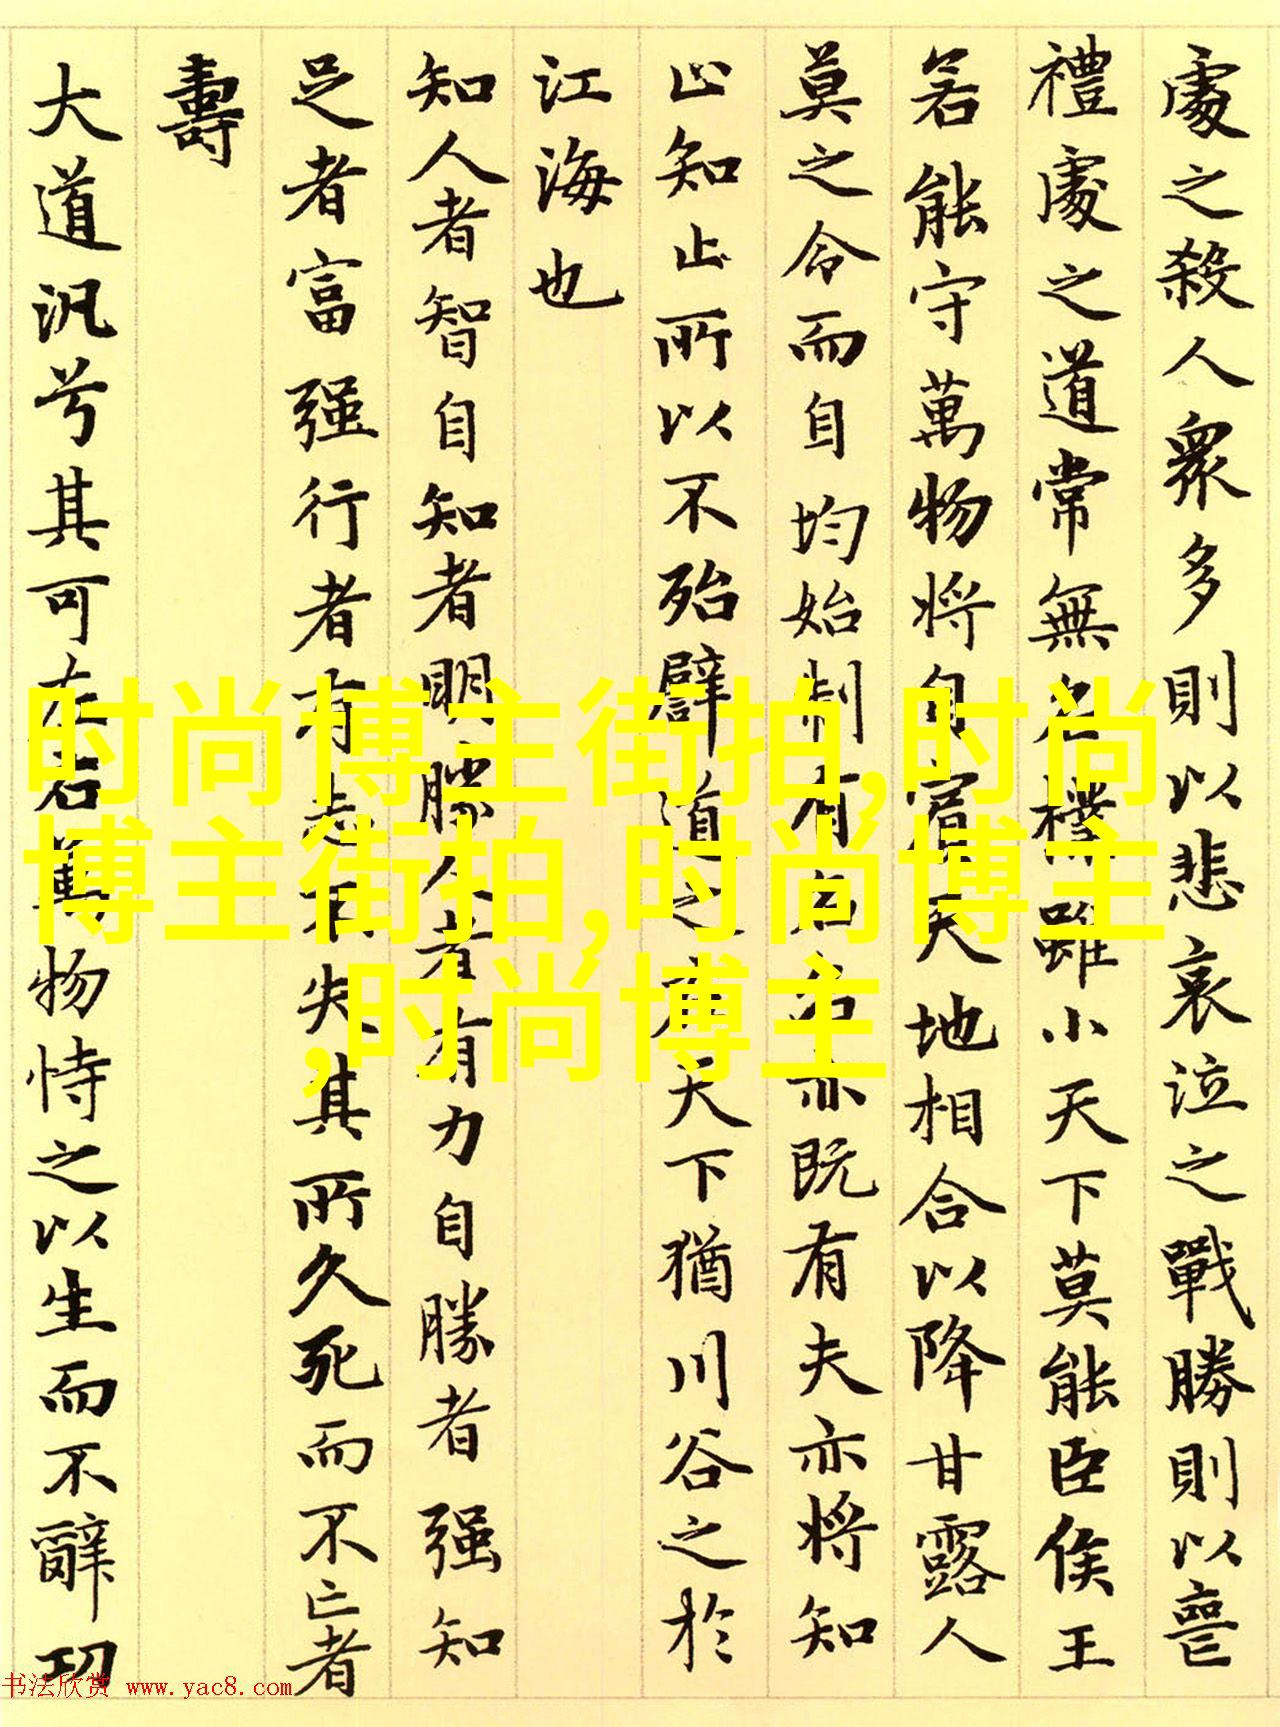 處之殺人衆多則以悲哀泣之戰勝則以喪
禮處之道常無名樸雖小天下莫能臣侯王
若能守萬物將自賓天地相合以降甘露人
莫之令而自均始制有名名亦既有夫亦將知
止知止所以不殆譬道之在天下猶川谷之於
江海也
知人者智自知者明勝人者有力自勝者强知
足者富强行者有志不失其所久死而不亡者
壽
大道汎兮其可左右萬物恃之以生而不辭功
时尚博主街拍,时尚
博主街拍,时尚博主
,时尚博主
书法欣赏 www.yac8.com